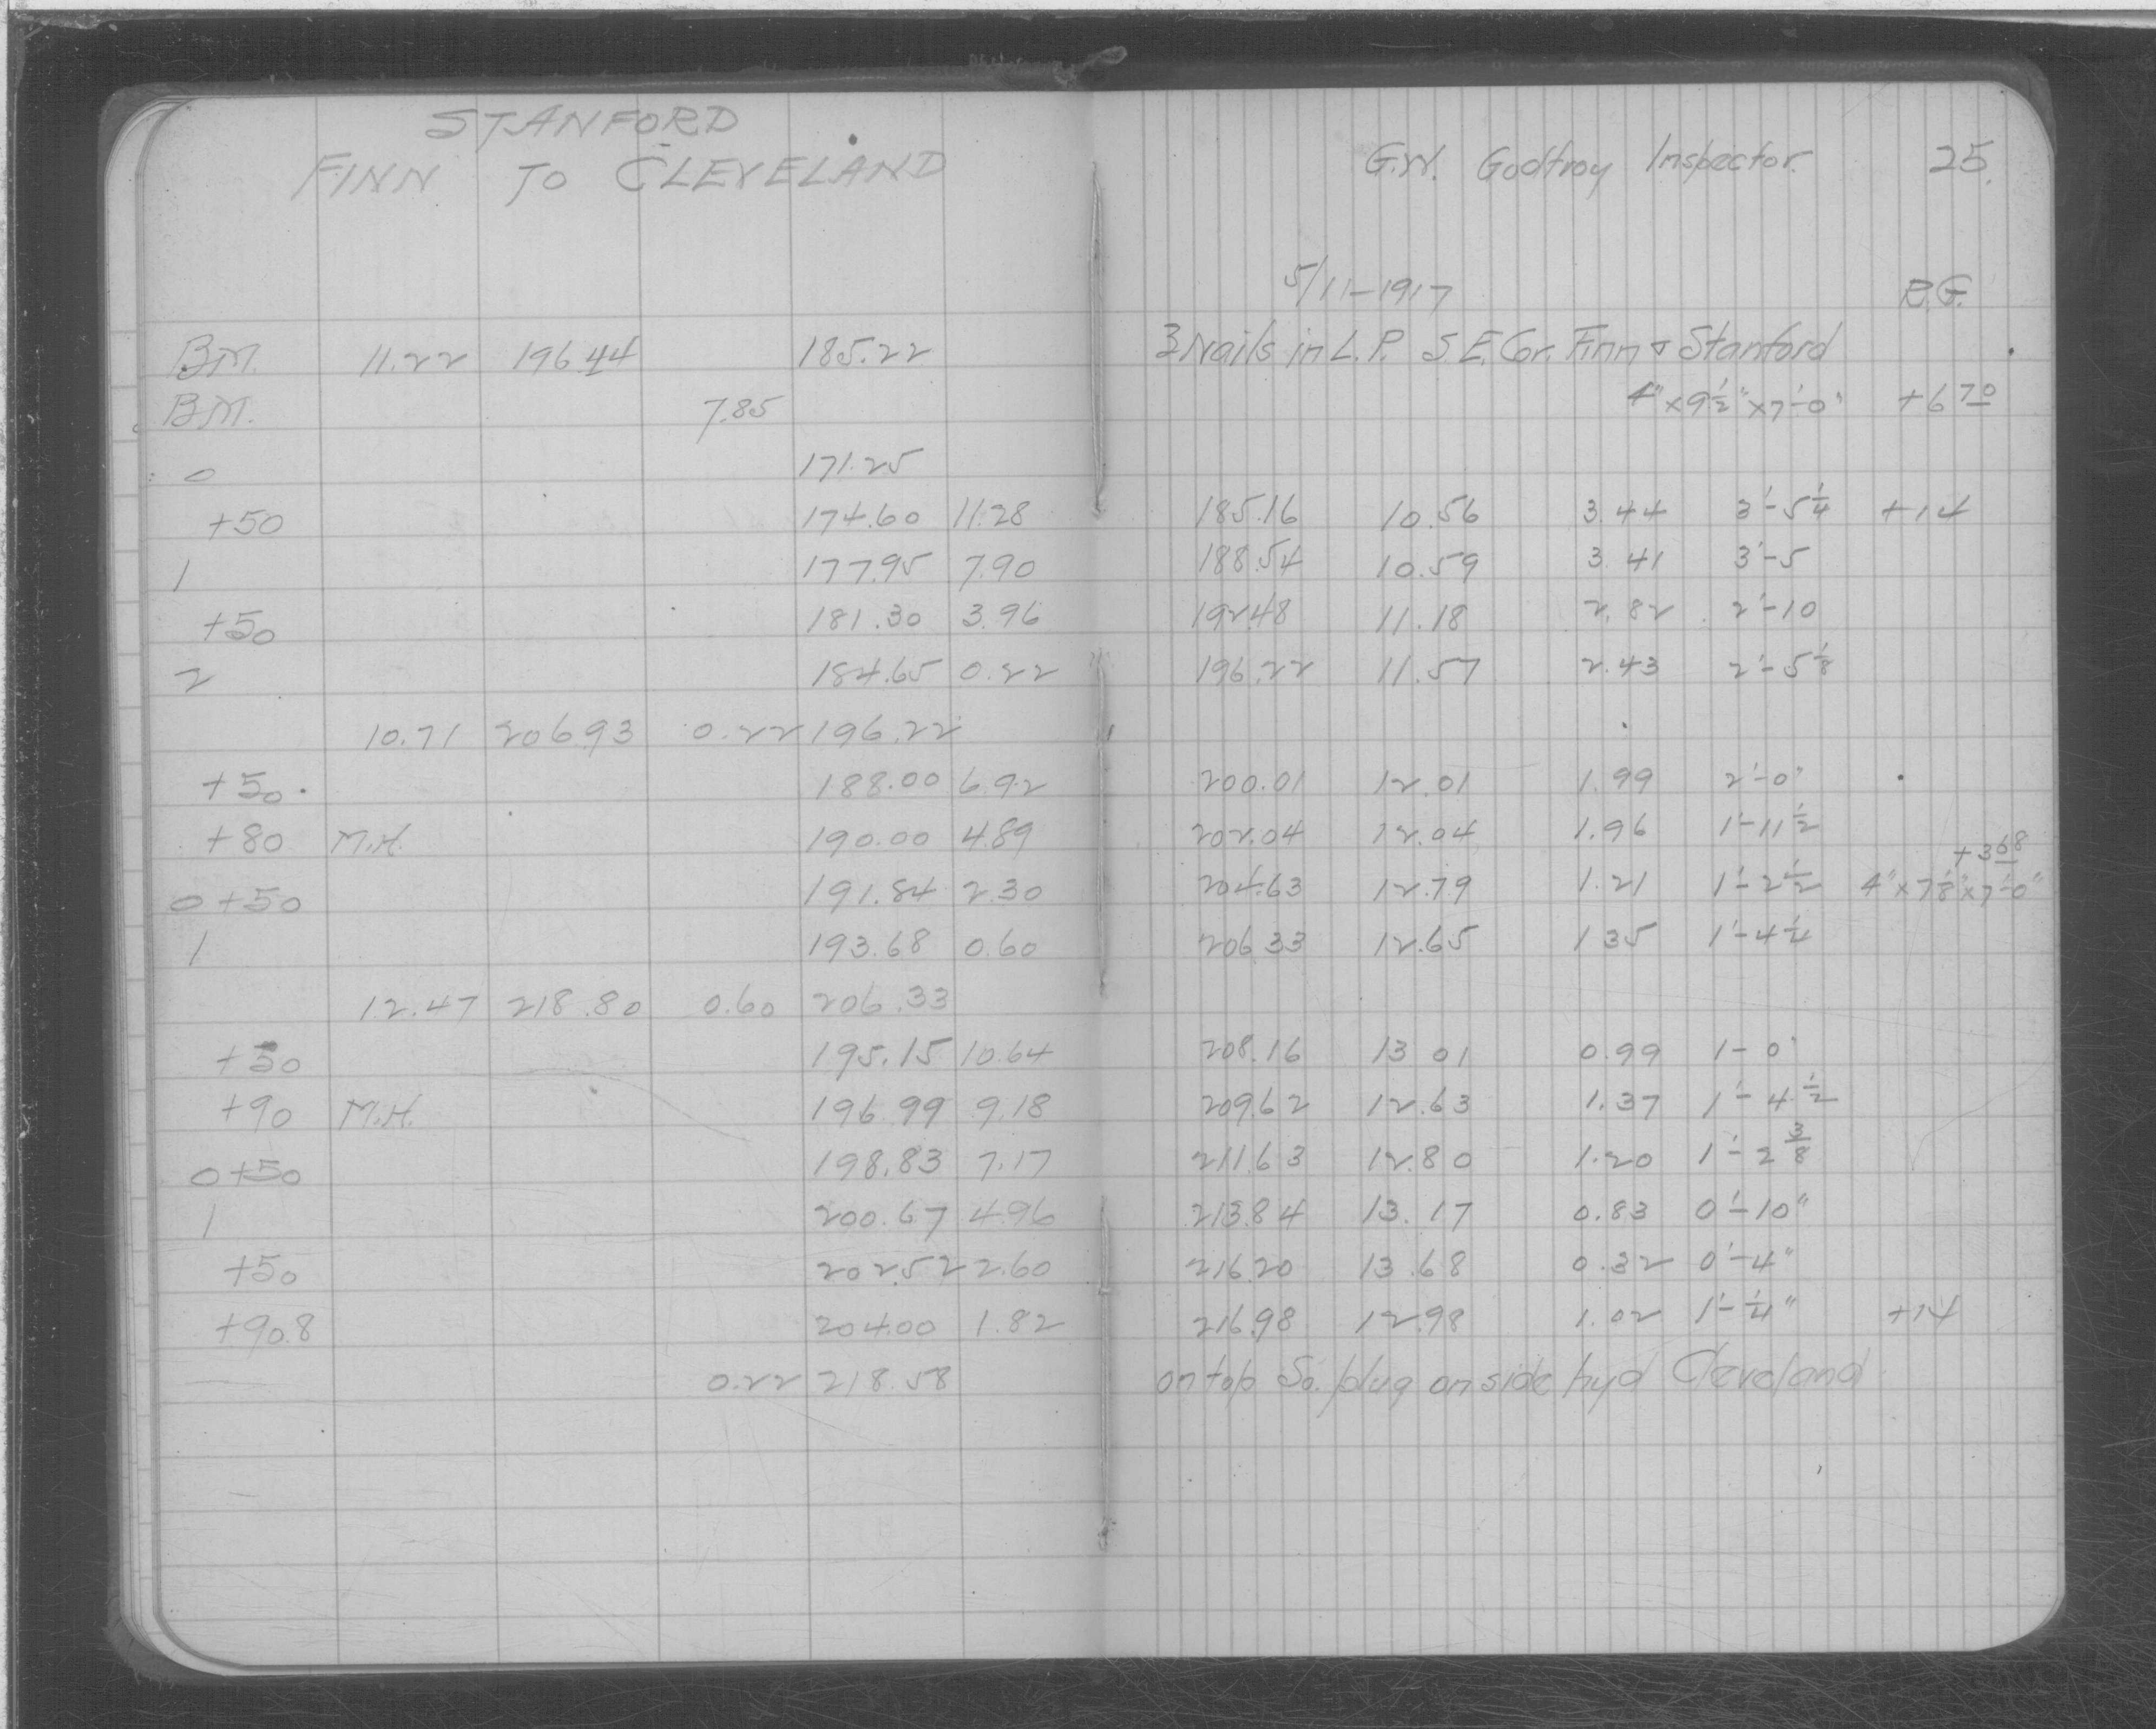 STANFORD
FINN TO CLEVELAND
G.W. Godfroy Inspector. 25.
5/11-1917 R.G.
BM. 11.22 196.44 185.22 3 Nails in L.P. S.E. Cor. Finn & Stanford
BM. 7.85 4"x9½"x7'-0" +6 70
0 171.25
+50 174.60 11.28 185.16 10.56 3.44 3'-5¼ +14
1 177.95 7.90 188.54 10.59 3.41 3'-5
+50 181.30 3.96 192.48 11.18 2.82 2'-10
2 184.65 0.22 196.22 11.57 2.43 2'-5⅛
10.71 206.93 0.22 196.22
+50 188.00 6.92 200.01 12.01 1.99 2'-0"
+80 M.H. 190.00 4.89 202.04 12.04 1.96 1'-11½
+3 68
0+50 191.84 2.30 204.63 12.79 1.21 1'-2½ 4"x7⅛"x7'-0"
1 193.68 0.60 206.33 12.65 1.35 1'-4¼
12.47 218.80 0.60 206.33
+50 195.15 10.64 208.16 13.01 0.99 1-0"
+90 M.H. 196.99 9.18 209.62 12.63 1.37 1'-4½
0+50 198.83 7.17 211.63 12.80 1.20 1'-2⅜
1 200.67 4.96 213.84 13.17 0.83 0'-10"
+50 202.52 2.60 216.20 13.68 0.32 0'-4"
+90.8 204.00 1.82 216.98 12.98 1.02 1'-¼" +14
0.22 218.58 on top So. plug on side hyd Cleveland